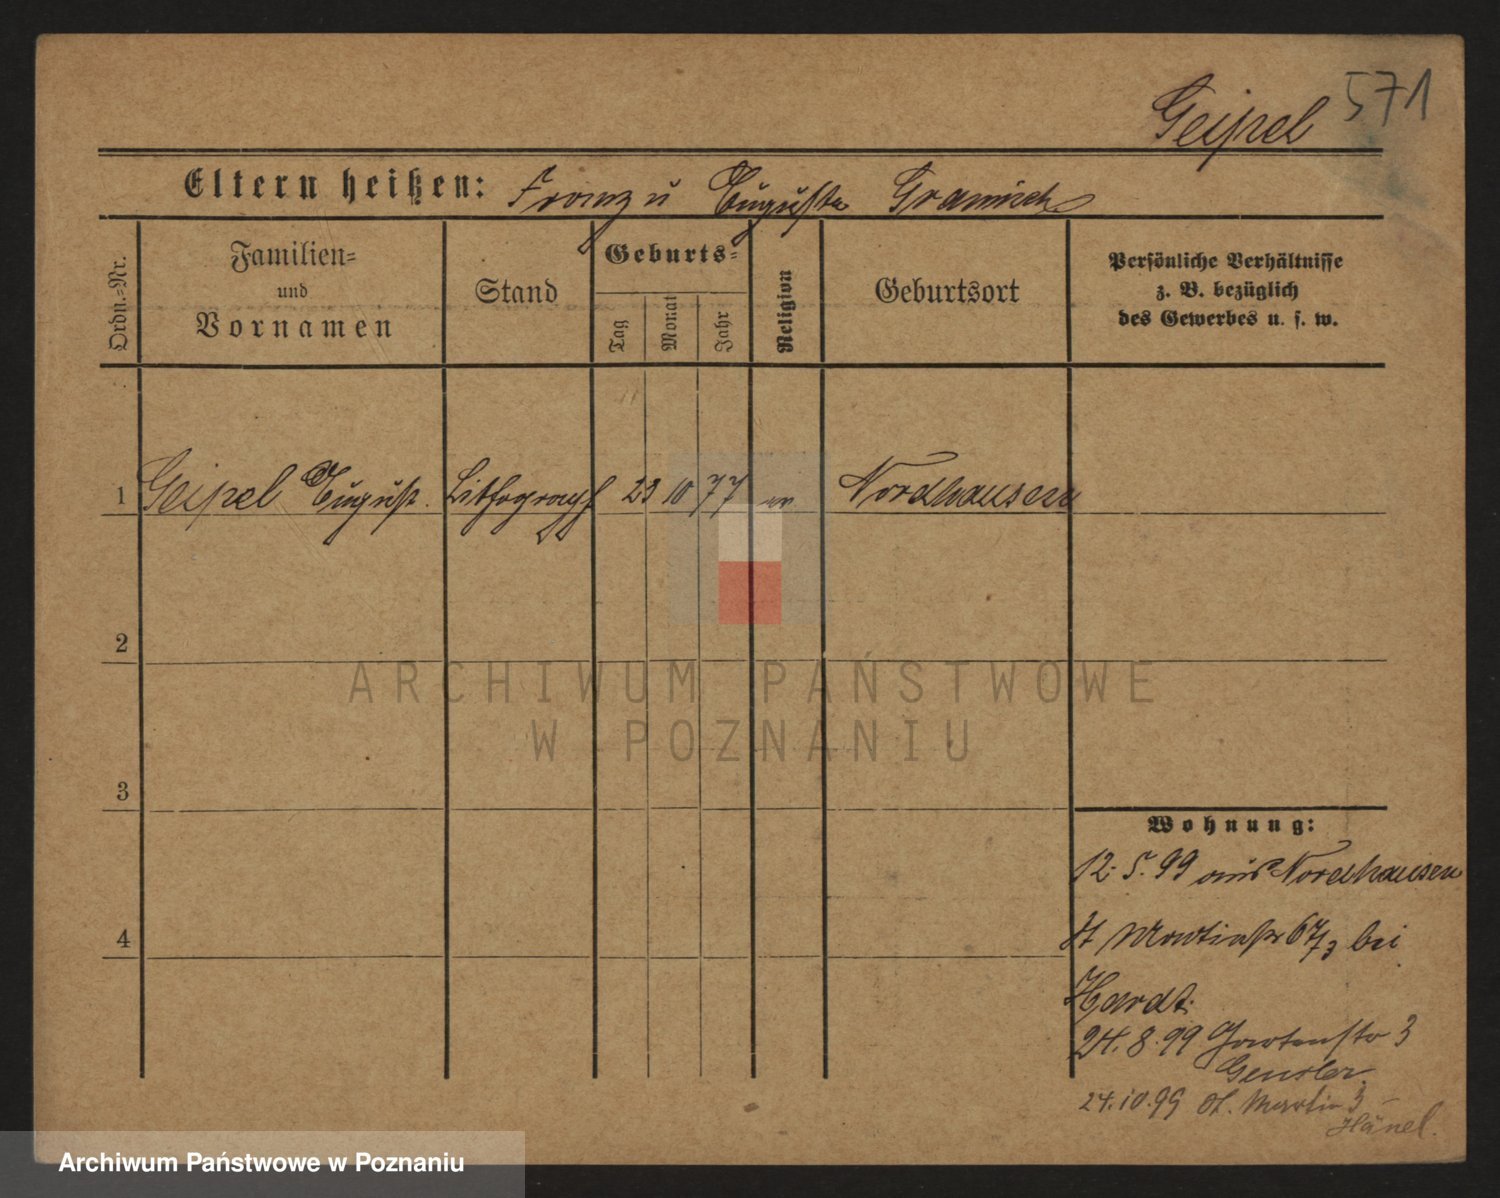 571
Geipel
Eltern heißen: Franz u Auguste Gramisch
Ordn.=Nr.
Familien=
und
Vornamen
Stand
Geburts=
Tag
Monat
Jahr
Religion
Geburtsort
Persönliche Verhältnisse
z. B. bezüglich
des Gewerbes u. s. w.
1 Geipel August. Lithograph 23 10 77 ev. Nordhausen
2
3
4
Wohnung:
12. 5. 99 aus Nordhausen
St Martinstr 67/3 bei
Hardt.
24. 8. 99 Gartenstr 3
Gensler.
24. 10. 99 St. Martin 3 –
Hänel.
ARCHIWUM PAŃSTWOWE
W POZNANIU
Archiwum Państwowe w Poznaniu